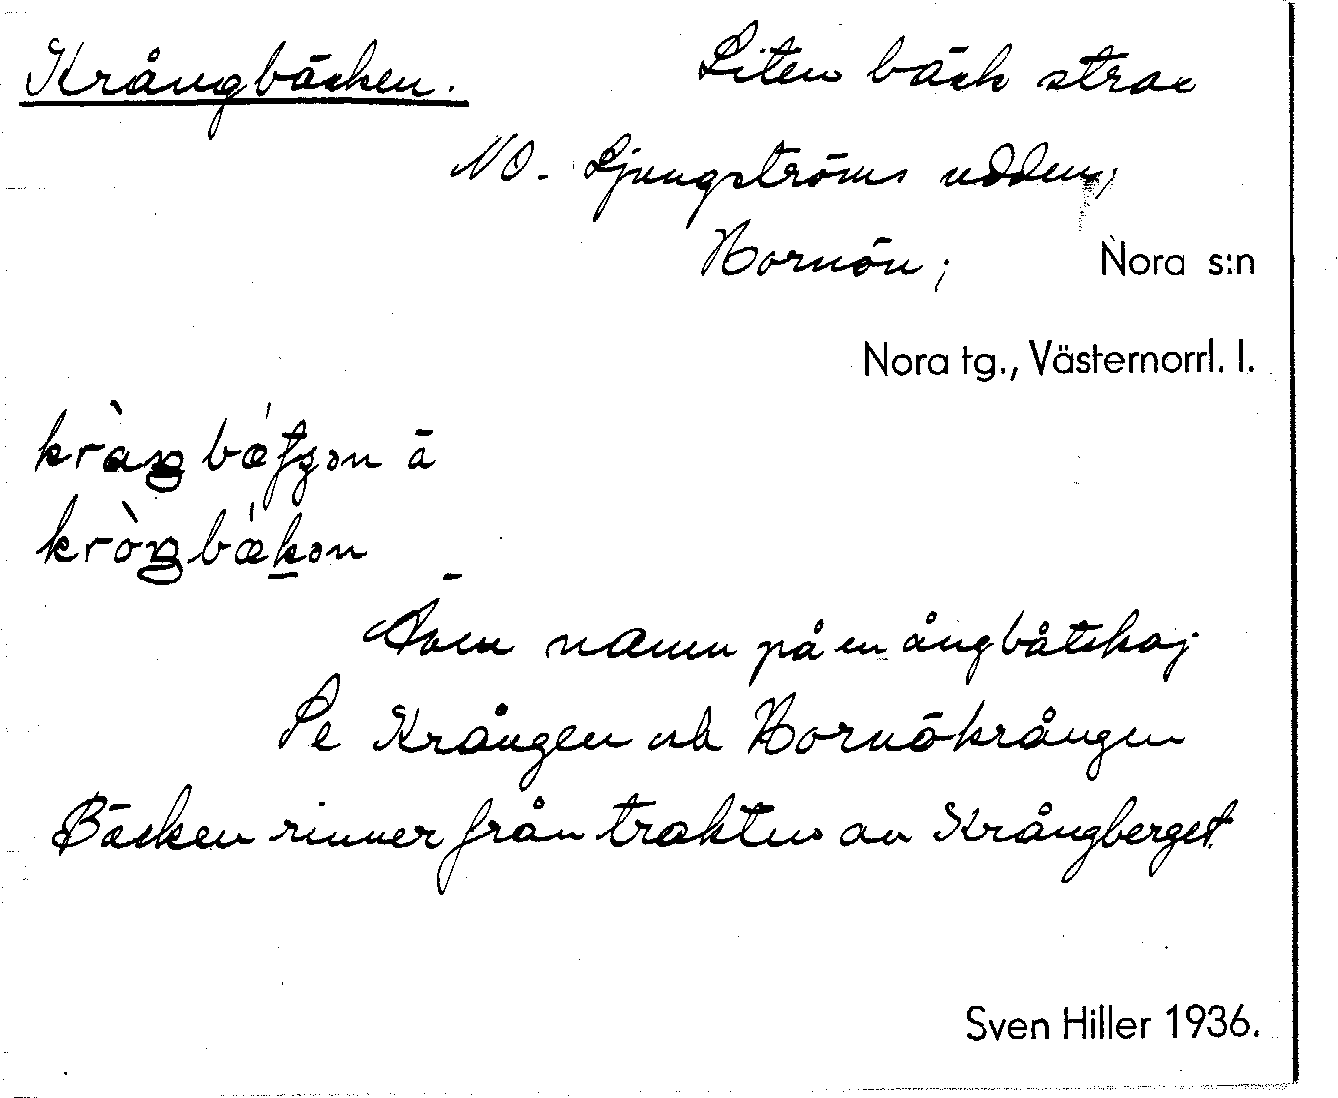 Krångbäcken. Liten bäck strax
NO. Ljungströms udden,
Hornön; Nora s:n
Nora tg., Västernorrl. l.
kràŋbǽtʃən ā
kròŋbǽkən
Som namn på en ångbåtskaj
Se Krången och Hornökrången
Bäcken rinner från trakten av Krångberget.
Sven Hiller 1936.